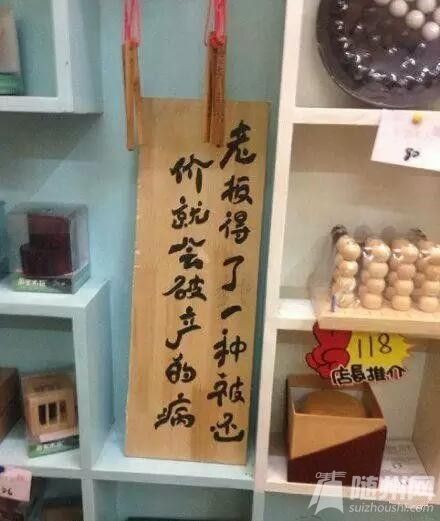 老板得了一种被还
价就会破产的病
80
118
店長推介
随州网
suizhoushi.com